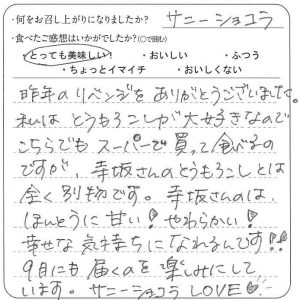 ・何をお召し上がりになりましたか？ サニーショコラ
・食べたご感想はいかがでしたか？(○で囲む)
・とっても美味しい！ ・おいしい ・ふつう
・ちょっとイマイチ ・おいしくない
昨年のリベンジをありがとうございました。
私はとうもろこしが大好きなので
こちらでもスーパーで買って食べるの
ですが、寺坂さんのとうもろこしとは
全く別物です。寺坂さんのは、
ほんとうに甘い！やわらかい！
幸せな気持ちになれるんです!!
9月にも届くのを楽しみにして
います。サニーショコラ LOVE♡